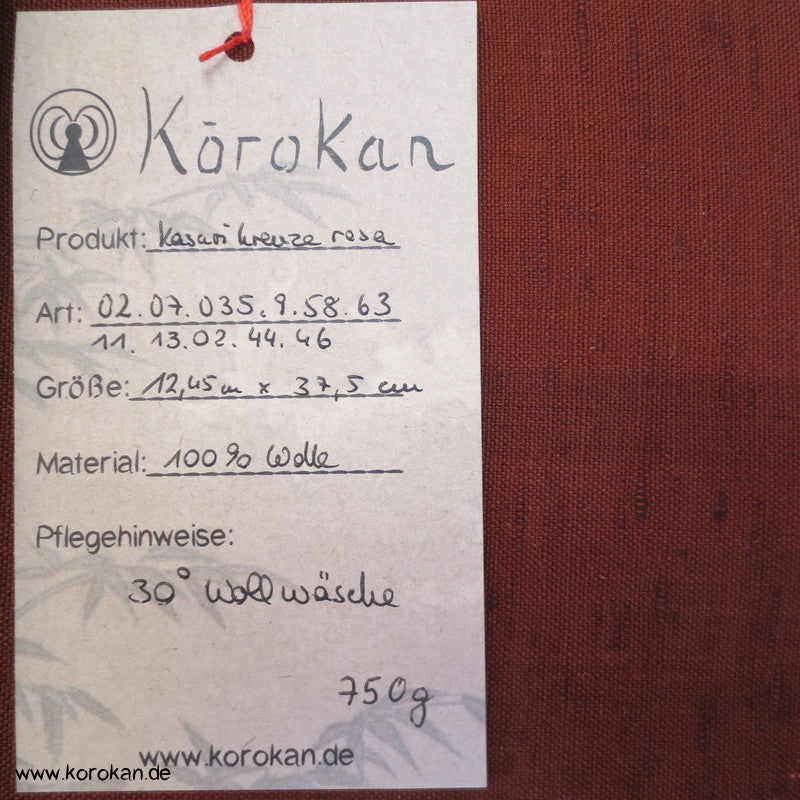 Kōrokan
Produkt: Kasuri kreuze rosa
Art: 02.07.035.9.58.63
11.13.02.44.46
Größe: 12,45m x 37,5 cm
Material: 100% Wolle
Pflegehinweise:
30° Wollwäsche
750g
www.korokan.de
www.korokan.de